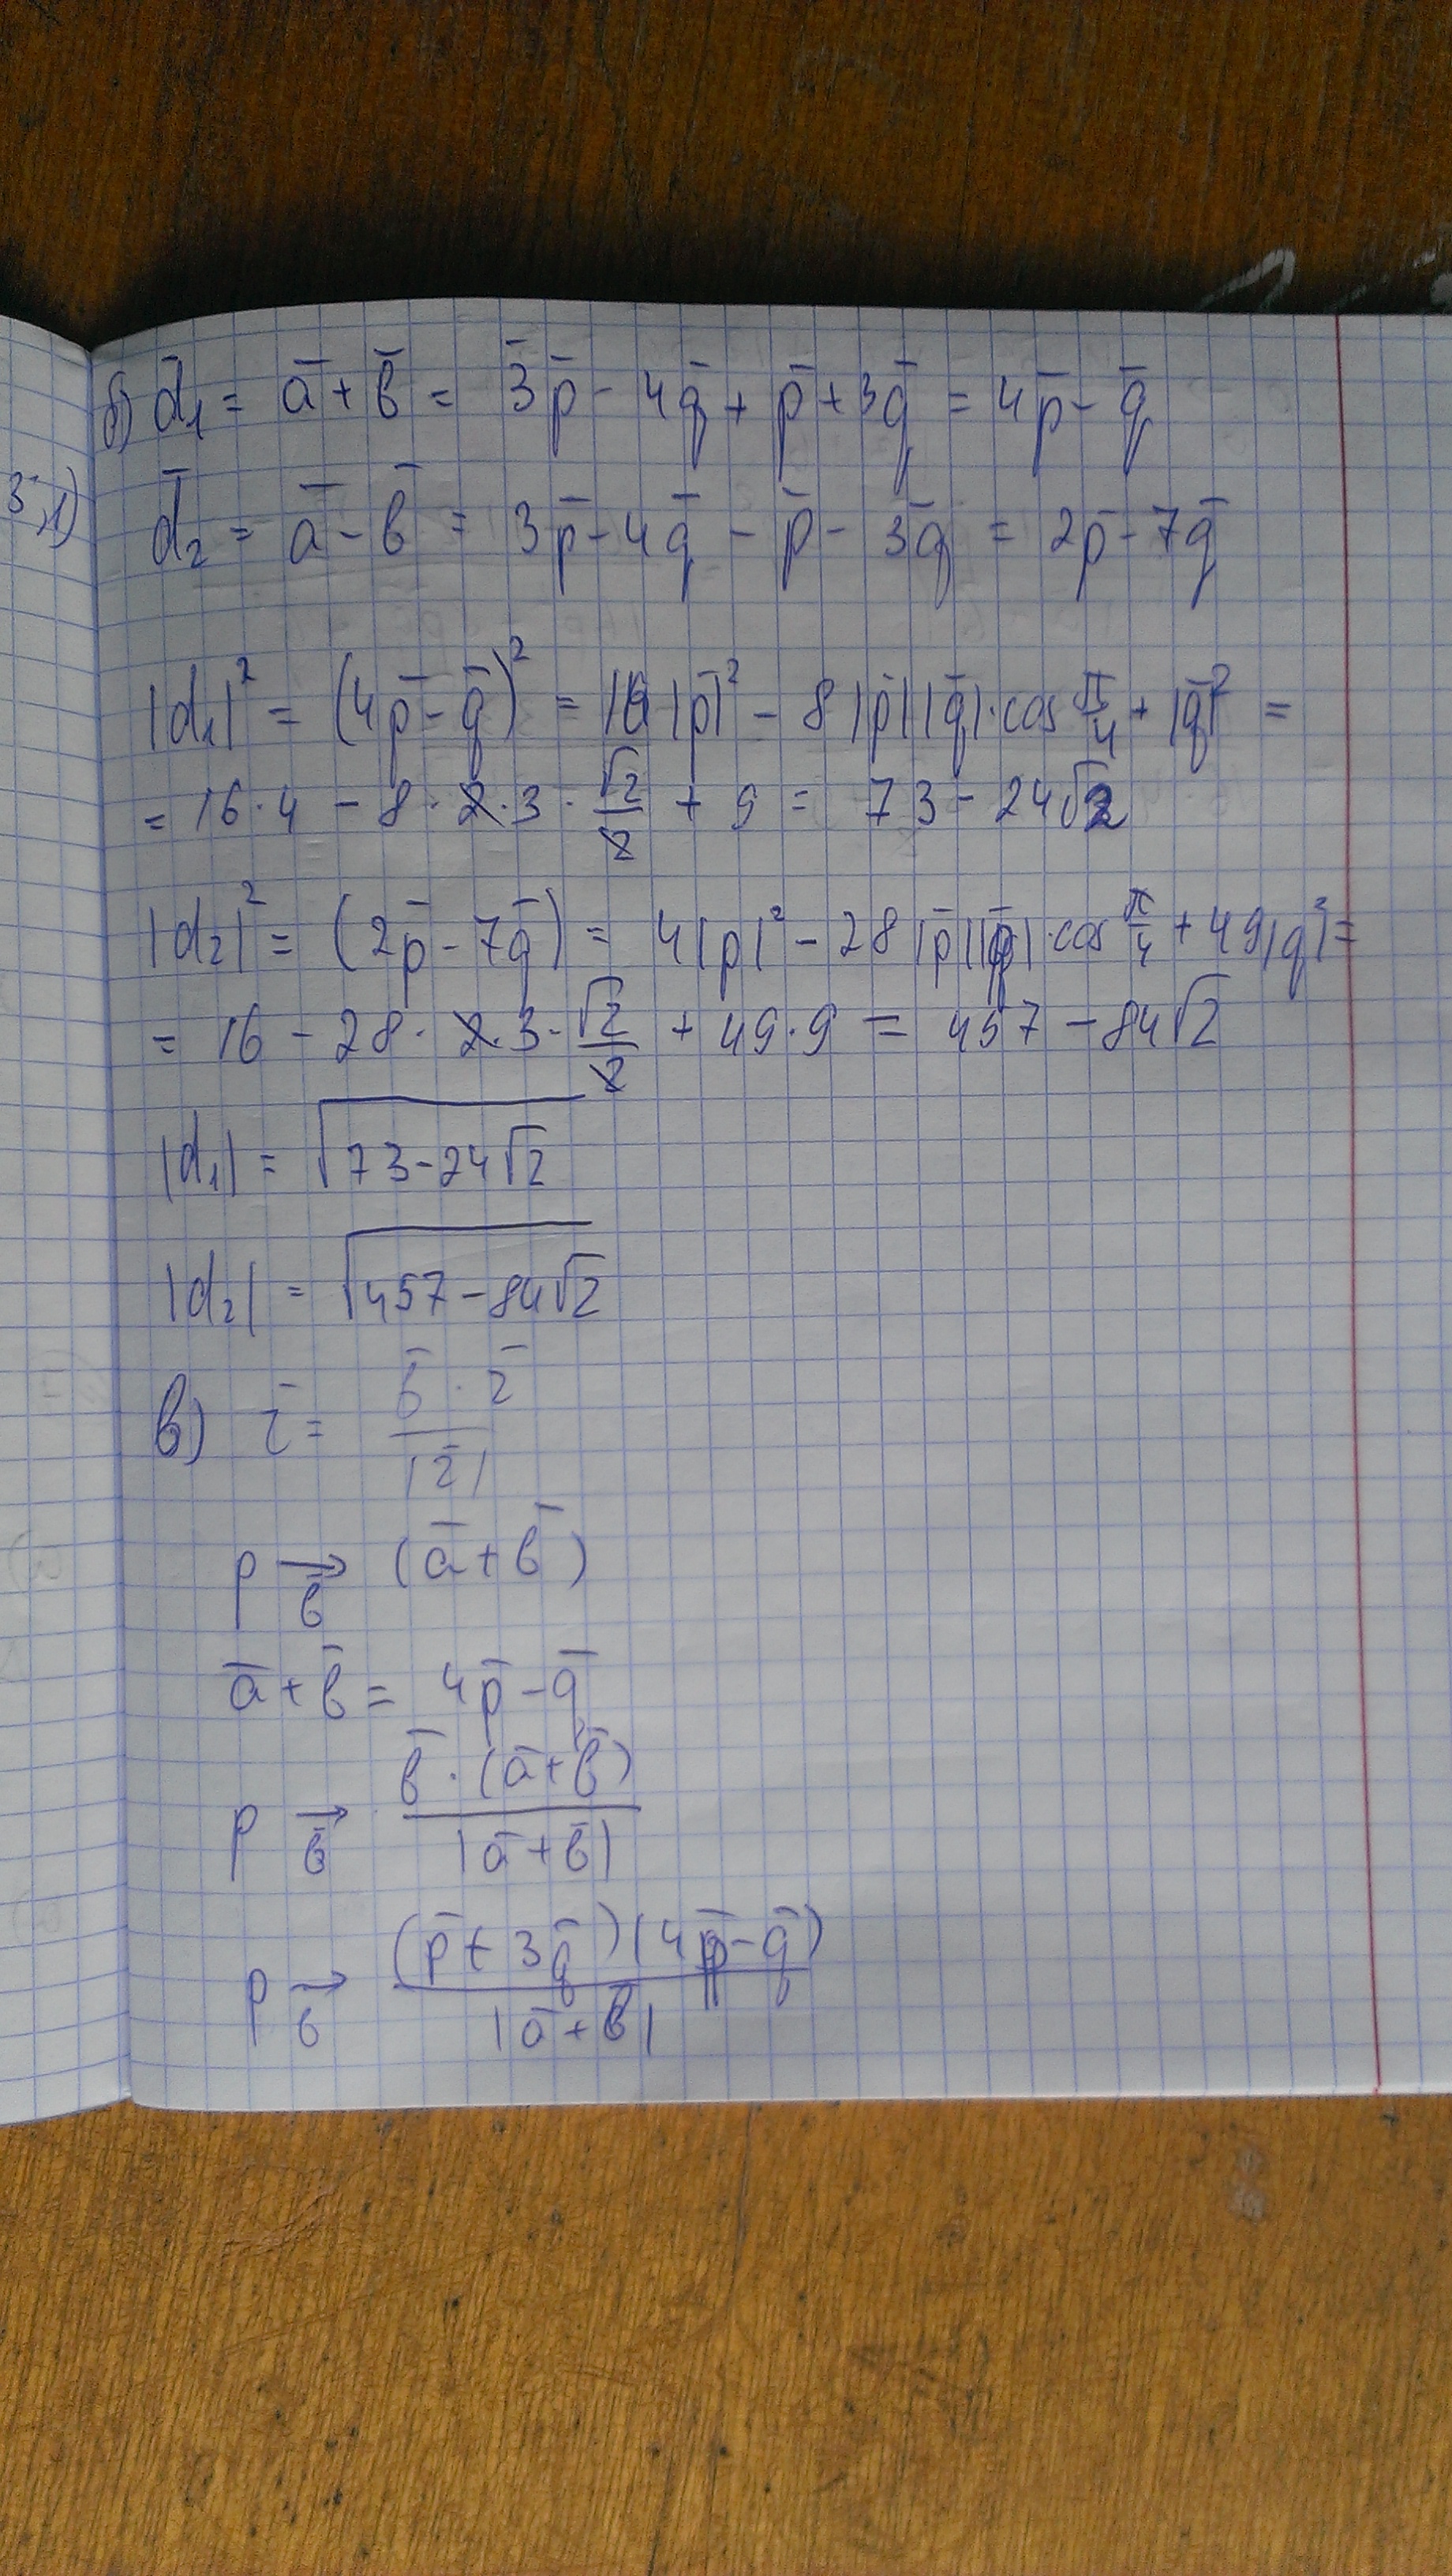 3,1)
б) d̄₁ = ā + в̄ = 3̄p̄ - 4q̄ + p̄ + 3q̄ = 4p̄ - q̄
d̄₂ = ā - в̄ = 3p̄ - 4q̄ - p̄ - 3q̄ = 2p̄ - 7q̄
|d₁|² = (4p̄ - q̄)² = 16|p̄|² - 8|p̄||q̄|·cos π/4 + |q̄|² =
= 16·4 - 8·2·3·√2/2 + 9 = 73 - 24√2
|d₂|² = (2p̄ - 7q̄) = 4|p|² - 28|p̄||q̄|·cos π/4 + 49|q|² =
= 16 - 28·2·3·√2/2 + 49·9 = 457 - 84√2
|d₁| = √(73 - 24√2)
|d₂| = √(457 - 84√2)
в)
p →в̄ (ā + в̄)
ā + в̄ = 4p̄ - q̄
p →в̄ в̄·(ā + в̄)/|ā + в̄|
p →в (p̄ + 3q̄)(4p̄ - q̄)/|ā + в̄|